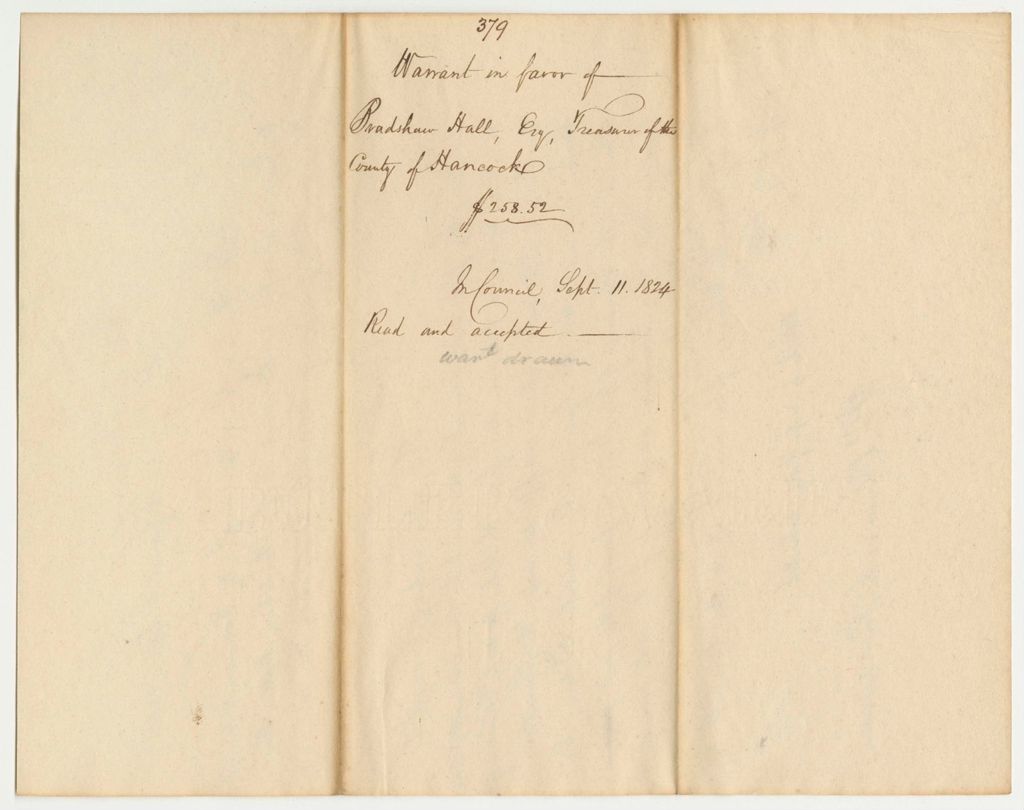 379
Warrant in favor of
Bradshaw Hall, Esq, Treasurer of the
County of Hancock
$258.52
In Council, Sept. 11. 1824
Read and accepted
wart drawn